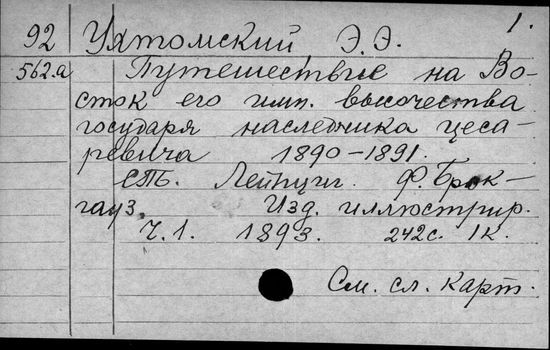 1.
92 Ухтомский Э.Э.
562.а Путешествие на Во-
сток его имп. высочества
государя наследника цеса-
ревича 1890-1891.
СПб. Лейпциг. Ф. Брок-
гауз. Изд. иллюстрир.
Ч. 1. 1893. 242с. 1к.
См. сл. карт.